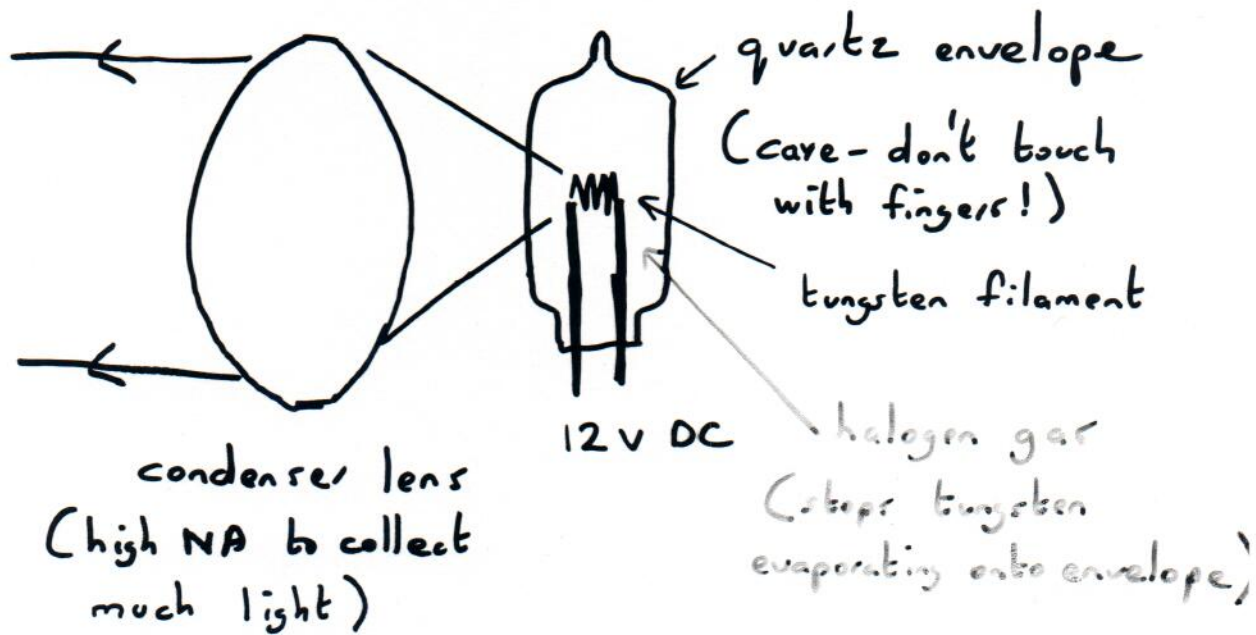 quartz envelope
(care - don't touch
with fingers!)
tungsten filament
12 V DC
halogen gas
(stops tungsten
evaporating onto envelope)
condenser lens
(high NA to collect
much light)